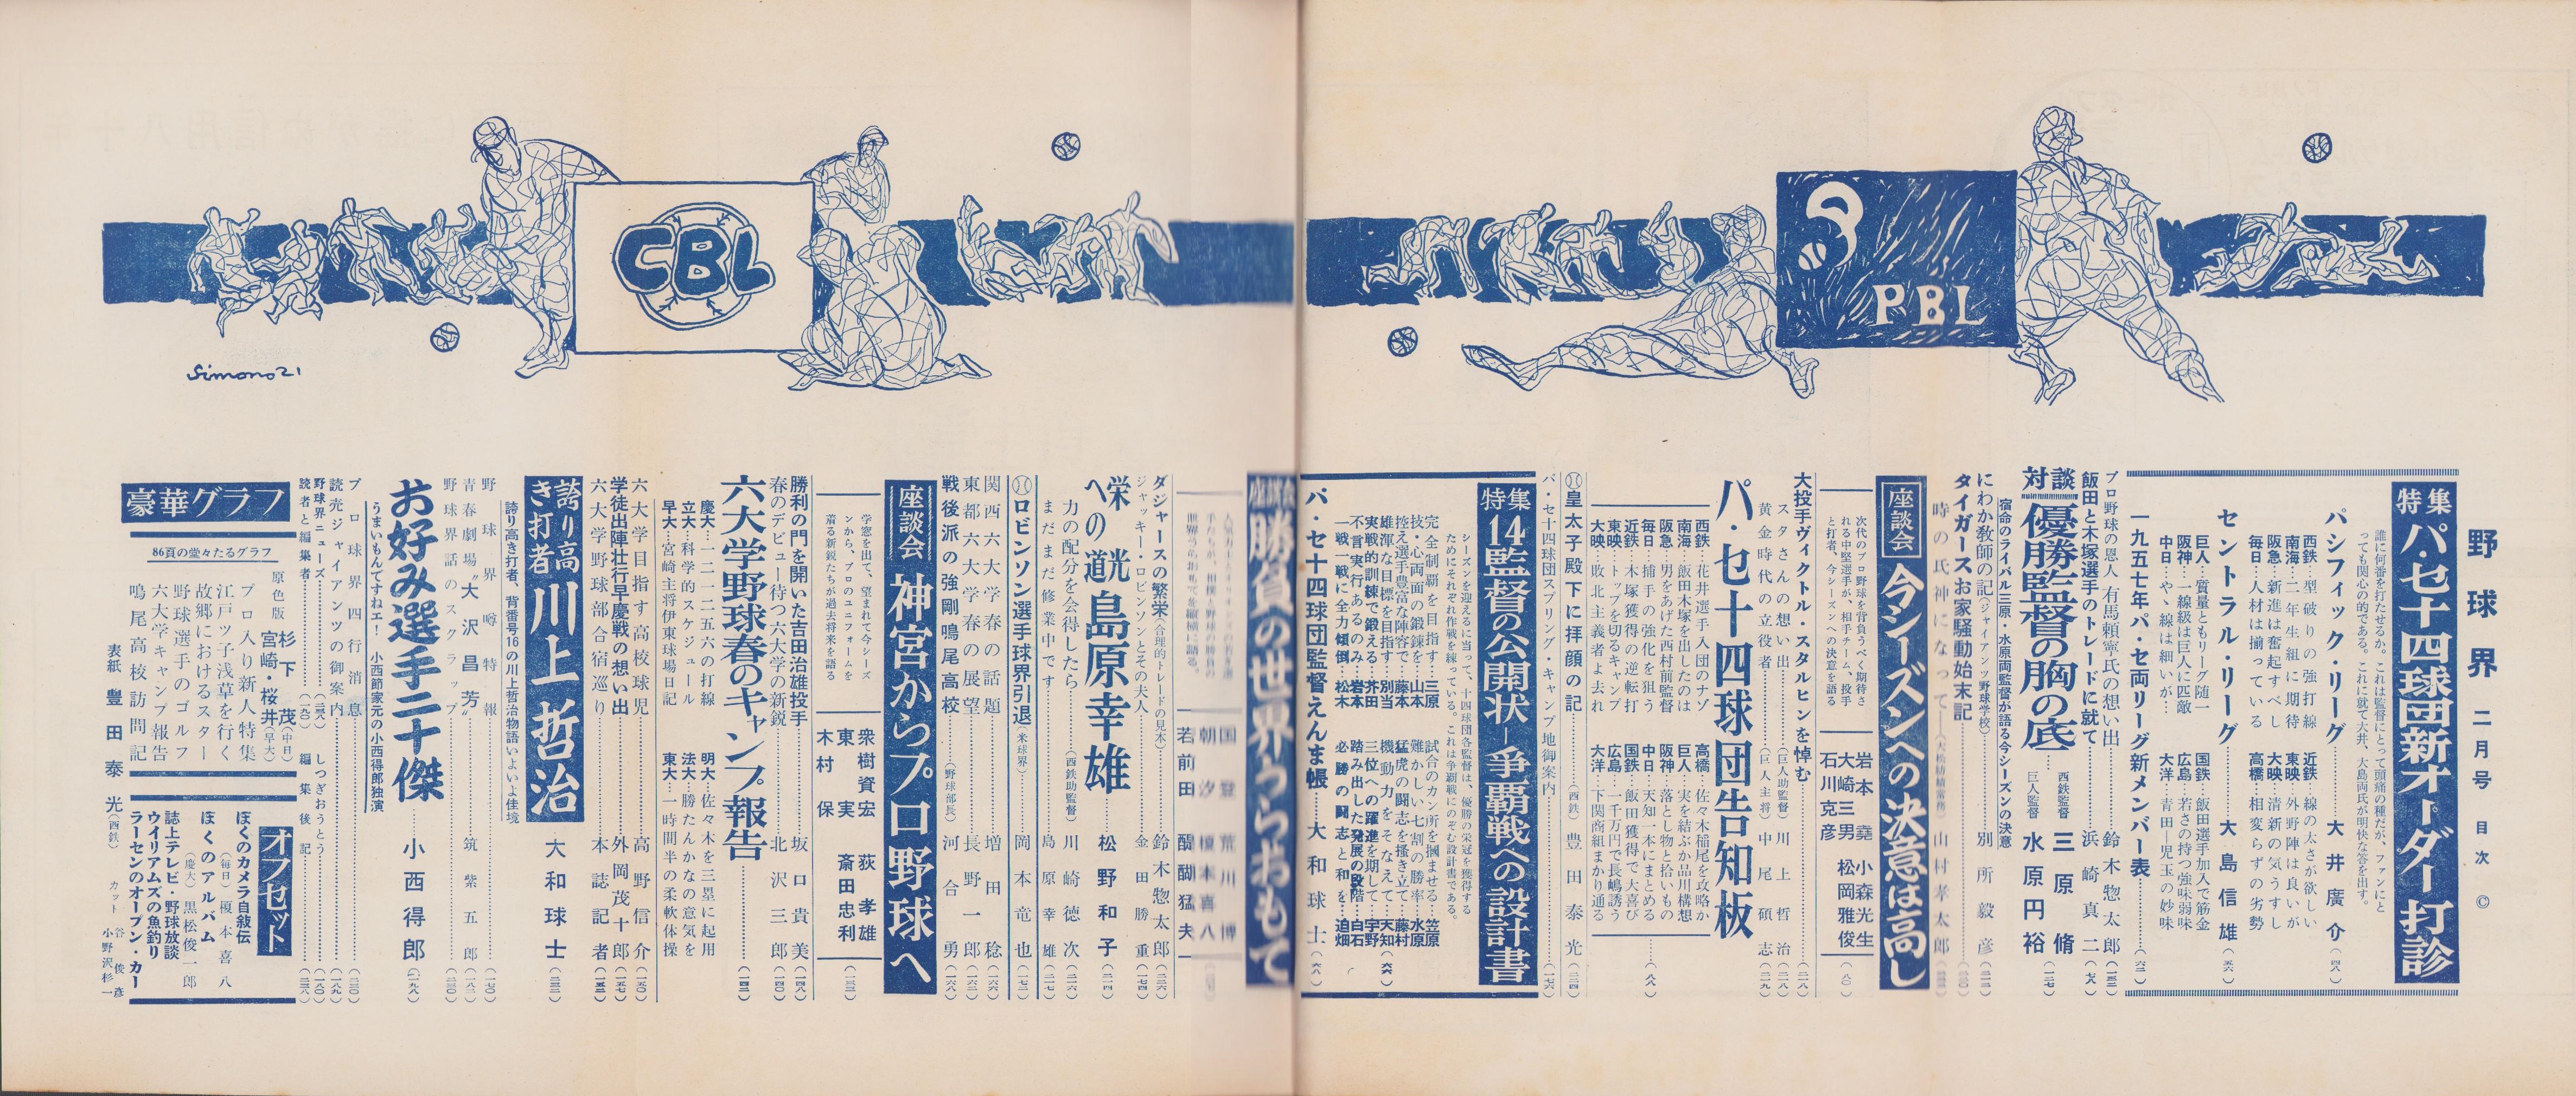 野球界 二月号 目次 ©
特集 パ・セ十四球団新オーダー打診
誰に何番を打たせるか。これは監督にとって頭痛の種だが、ファンにと
っても関心の的である。これに就て大井、大島両氏が明快な答を出す。
パシフィック・リーグ……大井廣介(四八)
西鉄…型破りの強打線
南海…二年生組に期待
阪急…新進は奮起すべし
毎日…人材は揃っている
近鉄…線の太さが欲しい
東映…外野陣は良いが
大映…清新の気うすし
高橋…相変らずの劣勢
セントラル・リーグ……大島信雄(五六)
巨人…質量ともリーグ随一
阪神…一線級は巨人に匹敵
中日…やゝ線は細いが…
国鉄…飯田選手加入で筋金
広島…若さの持つ強味弱味
大洋…青田―児玉の妙味
一九五七年パ・セ両リーグ新メンバー表……(六二)
プロ野球の恩人 有馬頼寧氏の想い出……鈴木惣太郎(一五二)
飯田と木塚選手のトレードに就て……浜崎真二(七八)
対談 優勝監督の胸の底……西鉄監督 三原脩 巨人監督 水原円裕(一二七)
宿命のライバル三原・水原両監督が語る今シーズンの決意
にわか教師の記(ジャイアンツ野球学校)……別所毅彦
タイガースお家騒動始末記
時の氏神になって―(大松紡績常務)山村孝太郎
座談会 今シーズンへの決意は高し
次代のプロ野球を背負うべく期待さ
れる中堅選手が、相手チーム、投手
と打者、今シーズンへの決意を語る
岩本堯 小森光生
大崎三男 松岡雅俊
石川克彦
(八〇)
大投手ヴィクトル・スタルヒンを悼む……(二一八)
スタさんの想い出……(巨人助監督)川上哲治
黄金時代の立役者……(巨人主将)中尾碩志(二一九)
パ・セ十四球団告知板
西鉄…花井選手入団のナゾ
南海…飯田木塚を出したのは
阪急…男をあげた西村前監督
毎日…捕手の強化を狙う
近鉄…木塚獲得の逆転打
東映…トップを切るキャンプ
大映…敗北主義者よ去れ
高橋…佐々木稲尾を攻略か
巨人…実を結ぶか品川構想
阪神…落とし物と拾いもの
中日…天知一本にまとめる
国鉄…飯田獲得で大喜び
広島…一千万円で長嶋誘う
大洋…下関商組まかり通る
……(八八)
皇太子殿下に拝顔の記……(西鉄)豊田泰光(二二四)
パ・セ十四球団スプリング・キャンプ地御案内……(一七六)
特集 14監督の公開状―争覇戦への設計書
シーズンを迎えるに当って、十四球団各監督は、優勝の栄冠を獲得する
ためにそれぞれ作戦を練っている。これは争覇戦にのぞむ設計書である。
完全制覇を目指す…三原
技・心両面の鍛錬を…山本
控え選手豊富な陣容で…藤本
雄渾な目標を目指す…別当
実戦的訓練で鍛える…芥田
不言実行あるのみ…岩本
一戦一戦に全力傾倒…松木
試合のカン所を摑ませる…笠原
難かしい七割の勝率…水原
猛虎の闘志を掻き立て…藤村
機動力をそなえて…天知
三位への躍進を期して…宇野
踏み出した発展の段階…白石
必勝の闘志と和を…迫畑
(六六)
パ・セ十四球団監督えんま帳……大和球士(六八)
座談会 勝負の世界うらおもて
国登 荒川博
朝汐 榎本喜八
若前田 醍醐猛夫
ダジャースの繁栄(合理的トレードの見本)……鈴木惣太郎(二二六)
ジャッキー・ロビンソンとその夫人……金田勝重(一七四)
栄光への道 島原幸雄……松野和子(二一四)
力の配分を会得したら……(西鉄助監督)川崎徳次(二一六)
まだまだ修業中です……島原幸雄(二一七)
ロビンソン選手球界引退(米球界)……岡本竜也(一七二)
関西六大学春の話題……増田稔(一六六)
東都六大学春の展望……長野一郎(一六三)
戦後派の強剛鳴尾高校……(野球部長)河合勇(一六八)
座談会 神宮からプロ野球へ
学窓を出て、望まれて今シーズ
ンから、プロのユニフォームを
着る新鋭たちが過去将来を語る
衆樹資宏 荻孝雄
東実 斎田忠利
木村保
(一三三)
勝利の門を開いた吉田治雄投手……坂口貴美(一四八)
春のデビュー待つ六大学の新鋭……北沢三郎(一四〇)
六大学野球春のキャンプ報告……(一四二)
慶大…一二一二五六の打線
立大…科学的スケジュール
早大…宮崎主将伊東球場日記
明大…佐々木を三塁に起用
法大…勝たんかなの意気を
東大…一時間半の柔軟体操
六大学目指す高校球児……高野信介(一五〇)
学徒出陣壮行早慶戦の想い出……外岡茂十郎(一五七)
六大学野球部合宿巡り……本誌記者(一五三)
誇り高き打者 川上哲治……大和球士(二三二)
誇り高き打者、背番号16の川上哲治物語いよいよ佳境
野球界大噂特報……(一七〇)
青春劇場"大沢昌芳"……筑紫五郎(一八二)
野球界話のスクラップ……(二三〇)
お好み選手二十傑……小西得郎(一九八)
うまいもんですねエ! 小西節家元の小西得郎独演
プロ球界四行消息……(二三〇)
読売ジャイアンツの御案内……(一八九)
野球界ニュース……(二三八) しつぎおうとう……(一八〇)
読者と編集者……(一九〇) 編集後記……(二三八)
豪華グラフ
86頁の堂々たるグラフ
原色版 杉下茂(中日)
宮崎・桜井(早大)
プロ入り新人特集
江戸ツ子浅草を行く
故郷におけるスター
野球選手のゴルフ
六大学キャンプ報告
鳴尾高校訪問記
オフセット
ぼくのカメラ自叙伝
(毎日)榎本喜八
ぼくのアルバム
(慶大)黒松俊一郎
誌上テレビ・野球放談
ウイリアムズの魚釣り
ラーセンのオープン・カー
表紙 豊田泰光(西鉄)
カット 谷俊彦
小野沢杉一
PBL
CBL
Simono21